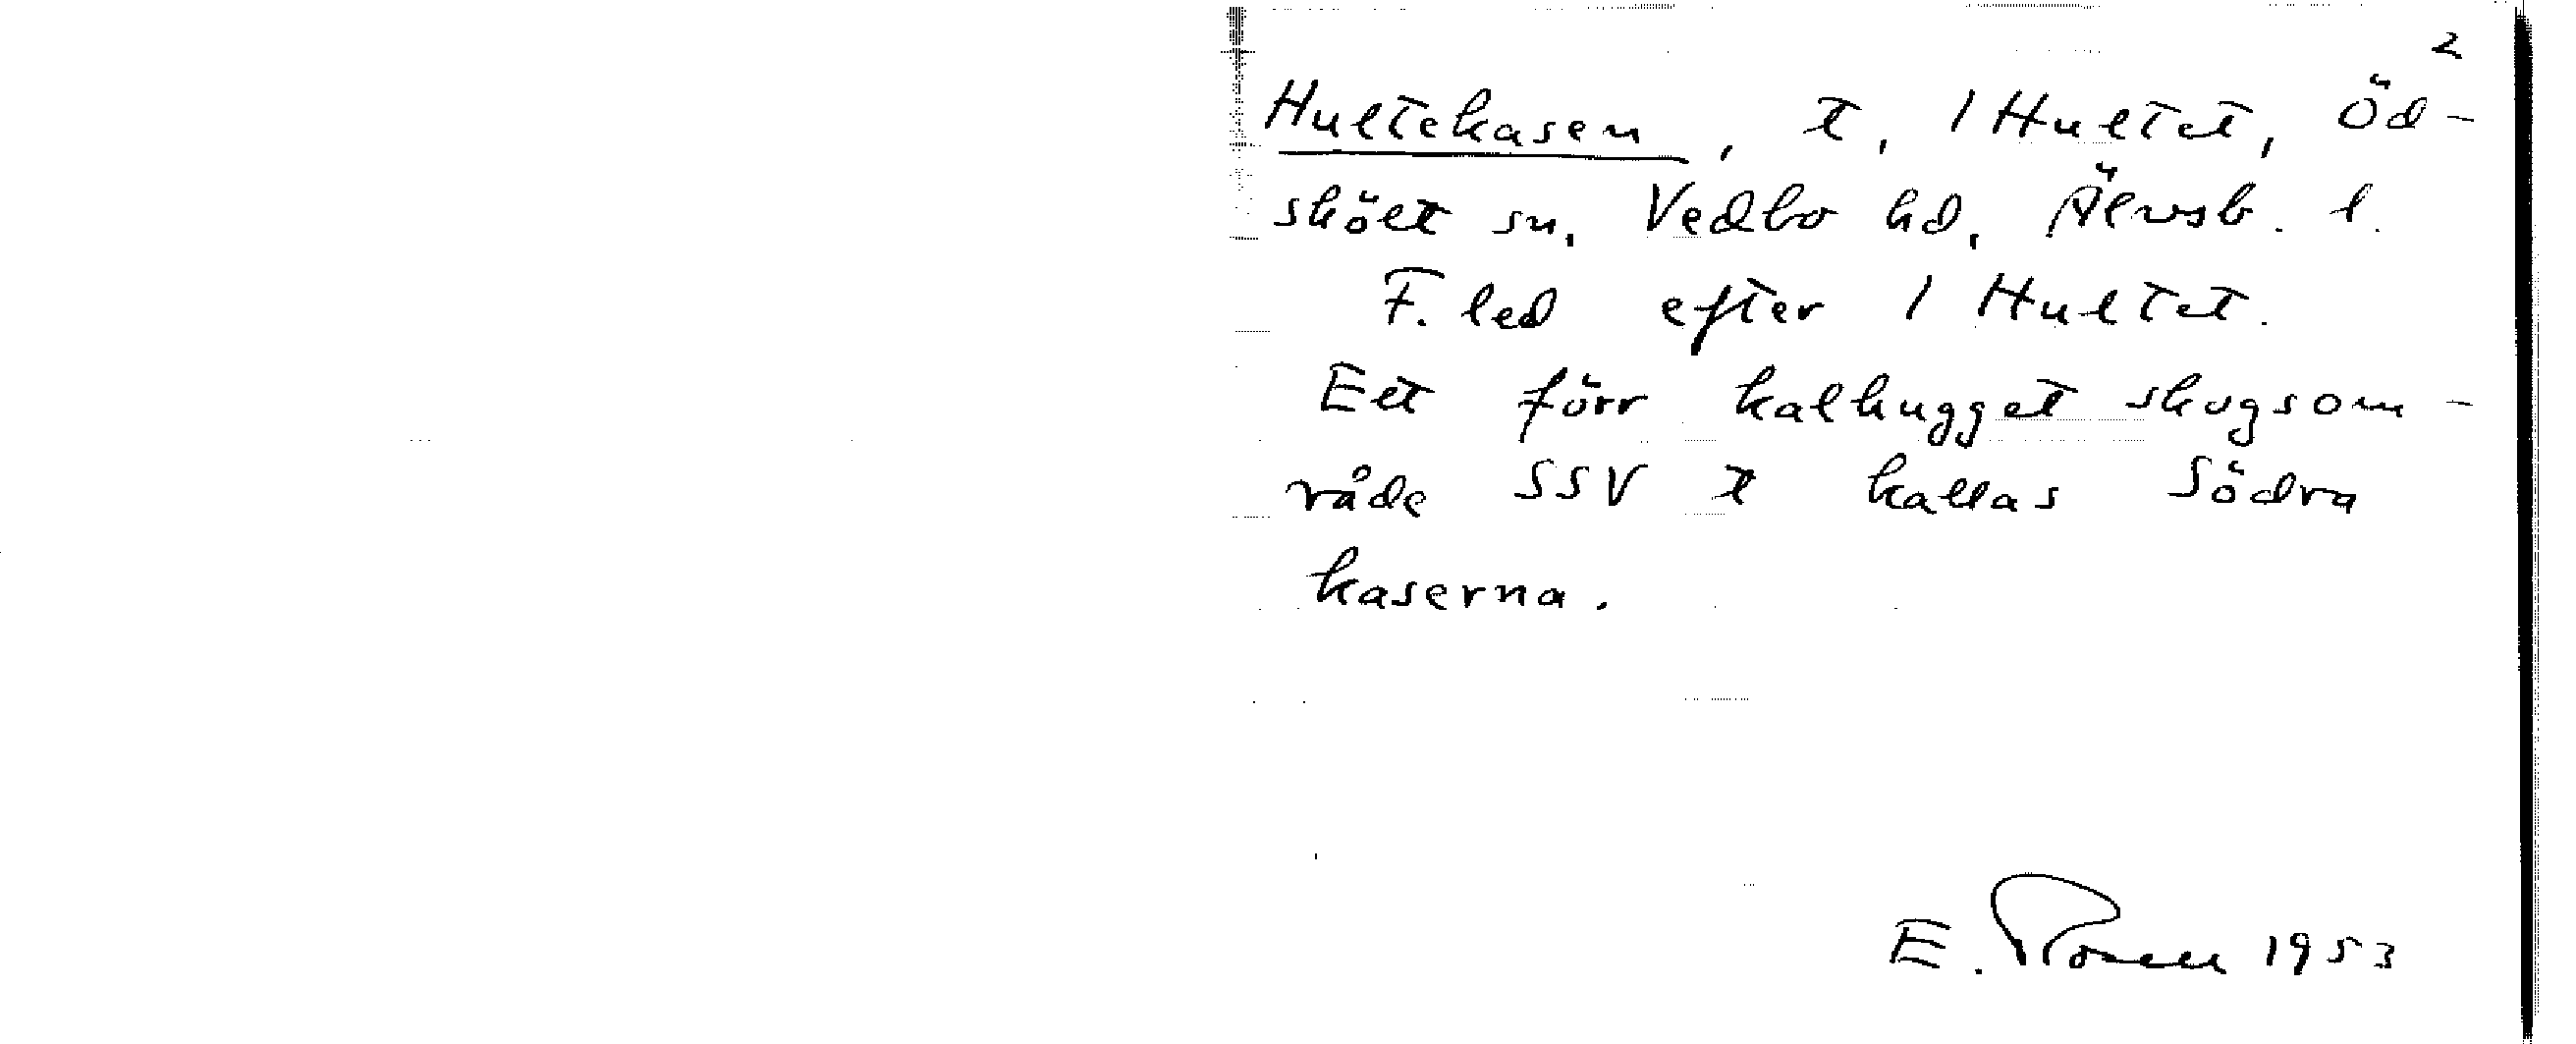 2
Hultekasen, t, 1 Hultet, Öd-
skölt sn, Vedbo hd, Älvsb. l.
F. led efter 1 Hultet.
Ett förr kalhugget skogsom-
råde SSV t kallas Södra
kaserna.
E. Rosell 1953